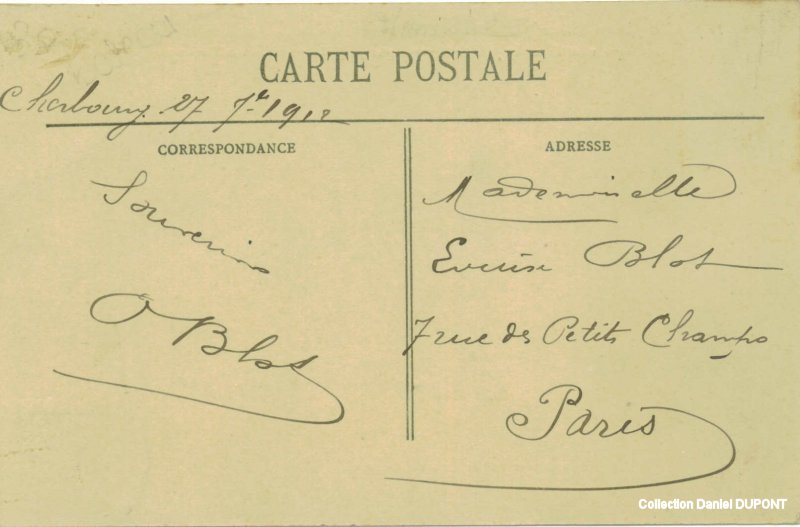 CARTE POSTALE
Cherbourg 27 7bre 1912
CORRESPONDANCE
Souvenirs
O Blot
ADRESSE
Mademoiselle
Louise Blot
7 rue des Petits Champs
Paris
Collection Daniel DUPONT